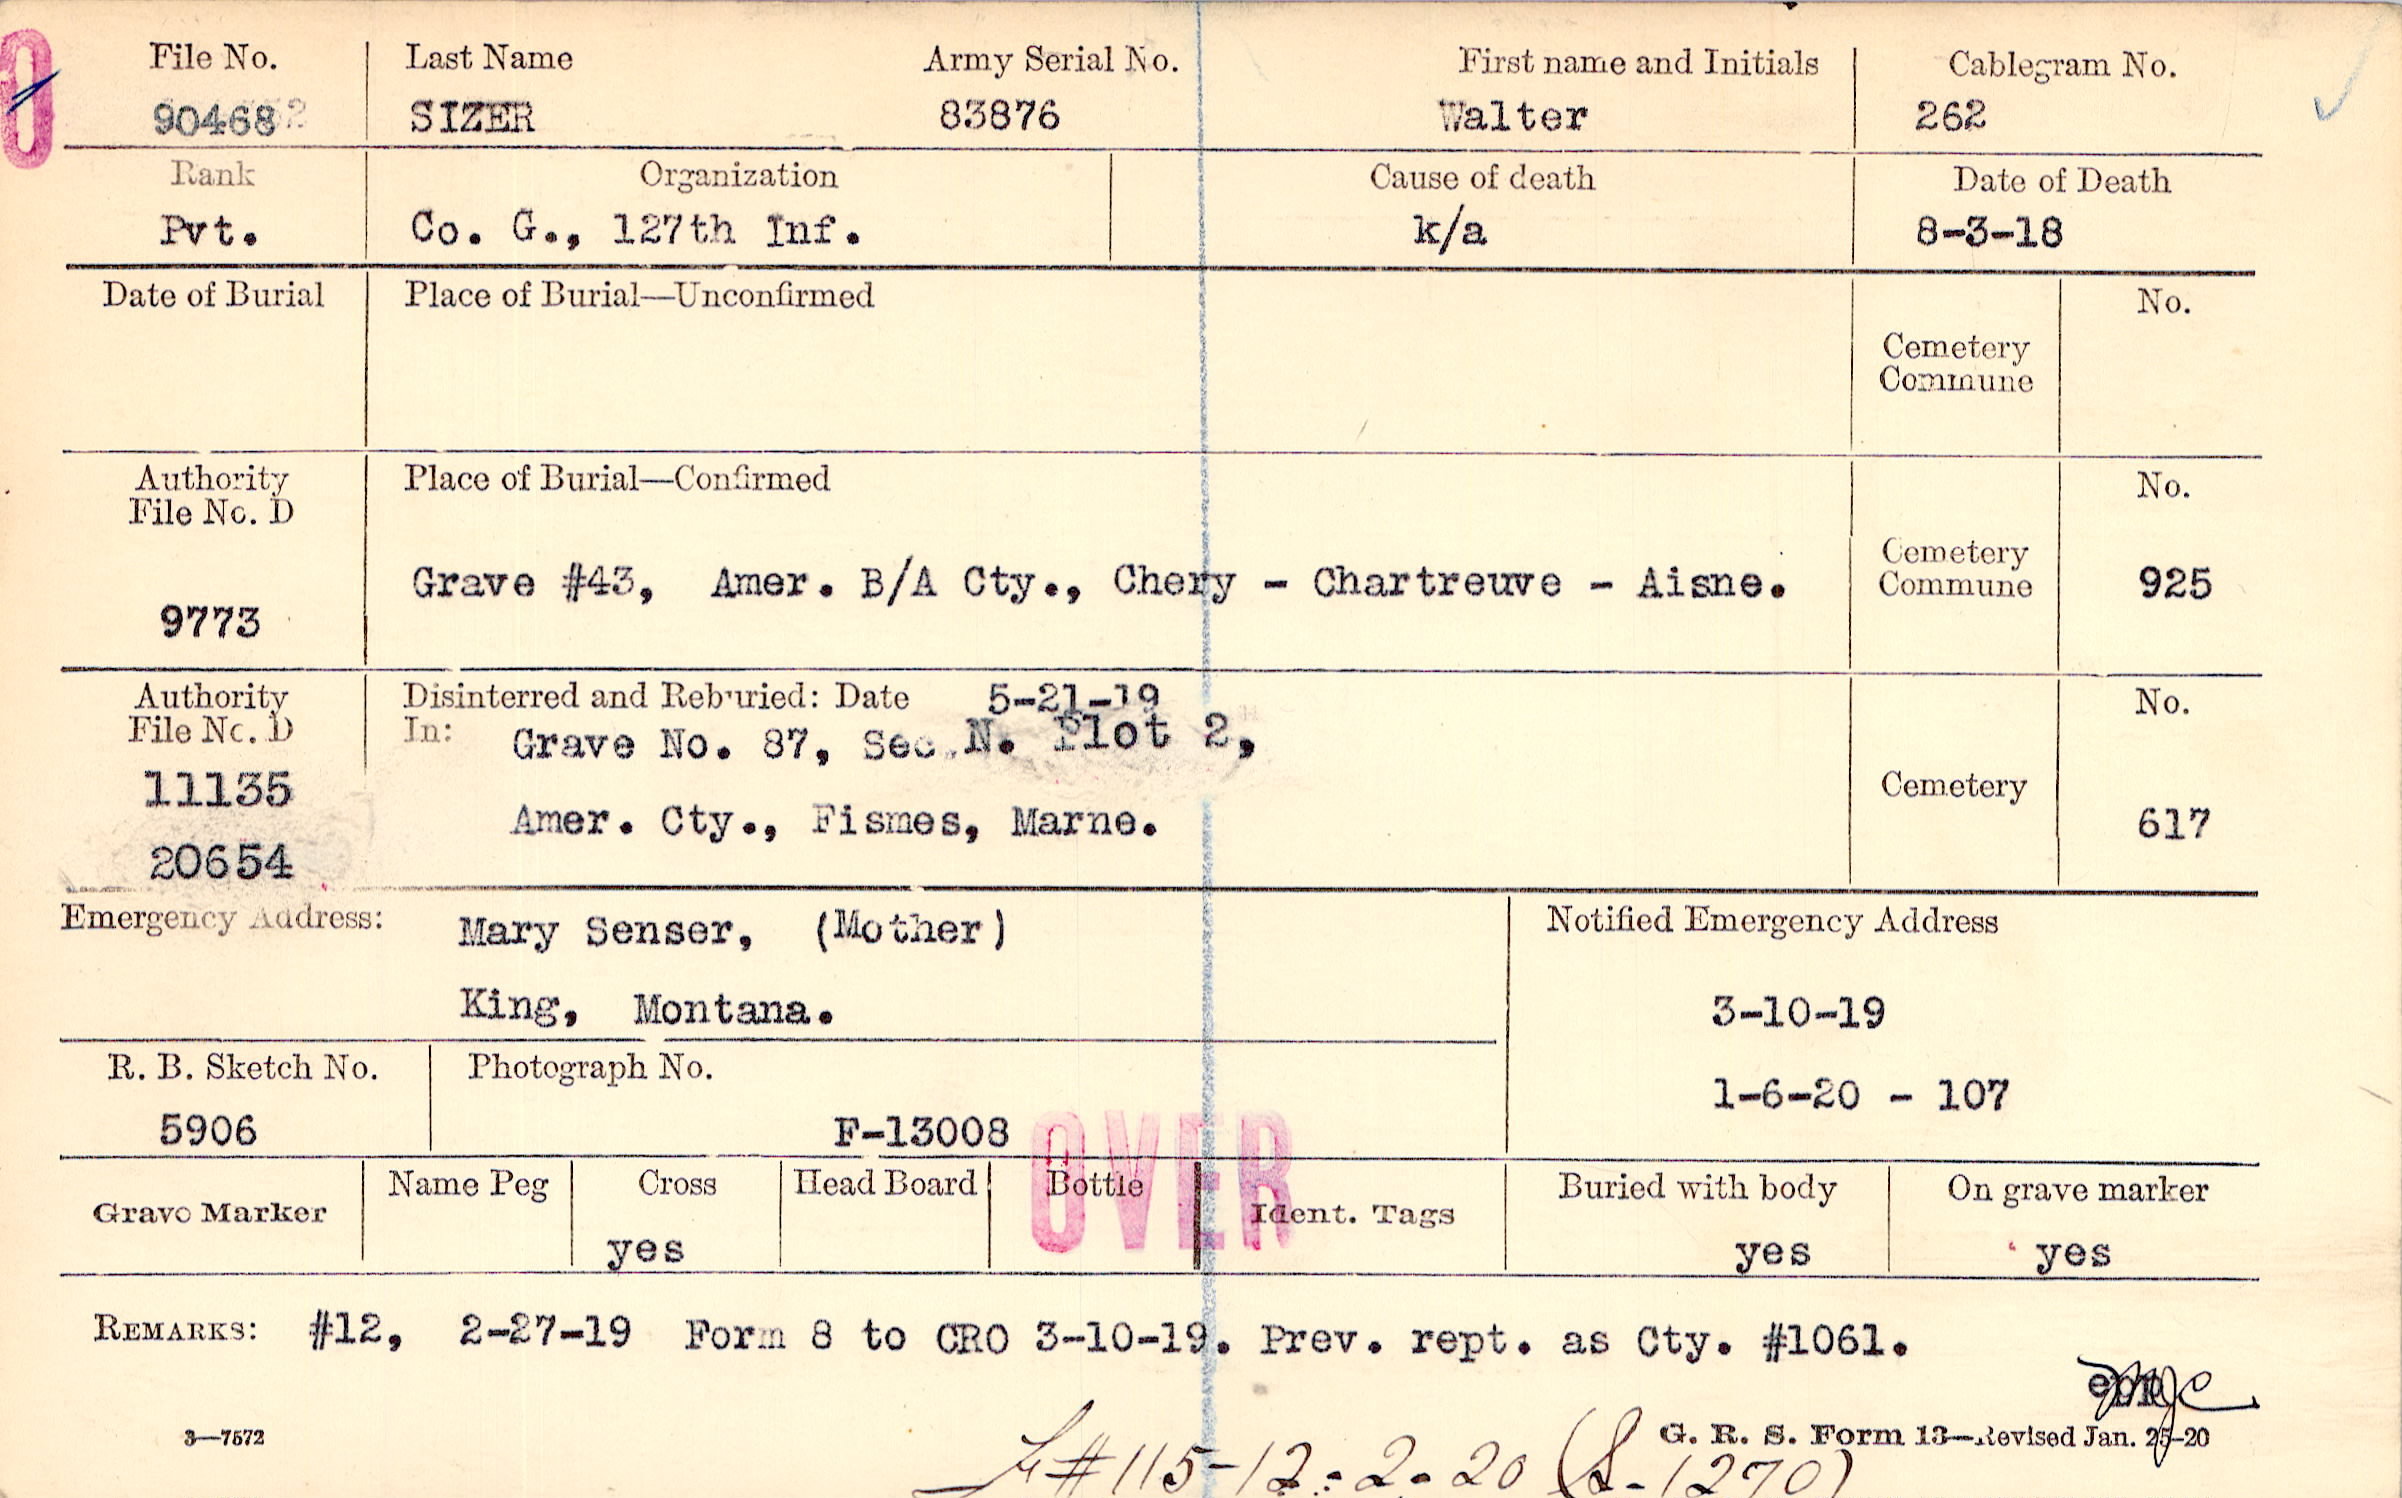 File No. Last Name Army Serial No. First name and Initials Cablegram No.
90468 SIZER 83876 Walter 262
Rank Organization Cause of death Date of Death
Pvt. Co. G., 127th Inf. k/a 8-3-18
Date of Burial Place of Burial—Unconfirmed No.
Cemetery
Commune
Authority Place of Burial—Confirmed No.
File No. D
Cemetery
Grave #43, Amer. B/A Cty., Chery - Chartreuve - Aisne. Commune 925
9773
Authority Disinterred and Reburied: Date 5-21-19 No.
File No. D In: Grave No. 87, Sec. N. Plot 2,
11135 Cemetery
Amer. Cty., Fismes, Marne. 617
20654
Emergency Address: Mary Senser, (Mother) Notified Emergency Address
King, Montana. 3-10-19
R. B. Sketch No. Photograph No. 1-6-20 - 107
5906 F-13008
OVER
Grave Marker Name Peg Cross Head Board Bottle Ident. Tags Buried with body On grave marker
yes yes yes
REMARKS: #12, 2-27-19 Form 8 to CRO 3-10-19. Prev. rept. as Cty. #1061.
3—7572 G. R. S. Form 13—Revised Jan. 25-20
#115-12-2-20 (S-1270)